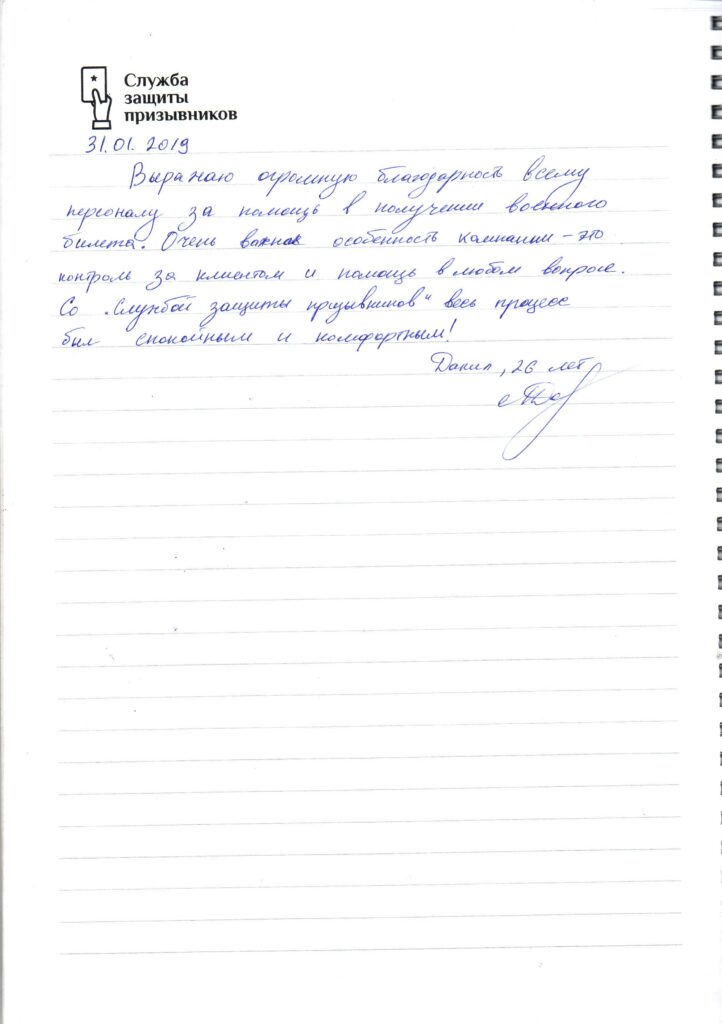 Служба
защиты
призывников
31.01.2019
Выражаю огромную благодарность всему
персоналу за помощь в получении военного
билета. Очень важная особенность компании – это
контроль за клиентом и помощь в любом вопросе.
Со „Службой защиты призывников" весь процесс
был спокойным и комфортным!
Данил, 26 лет